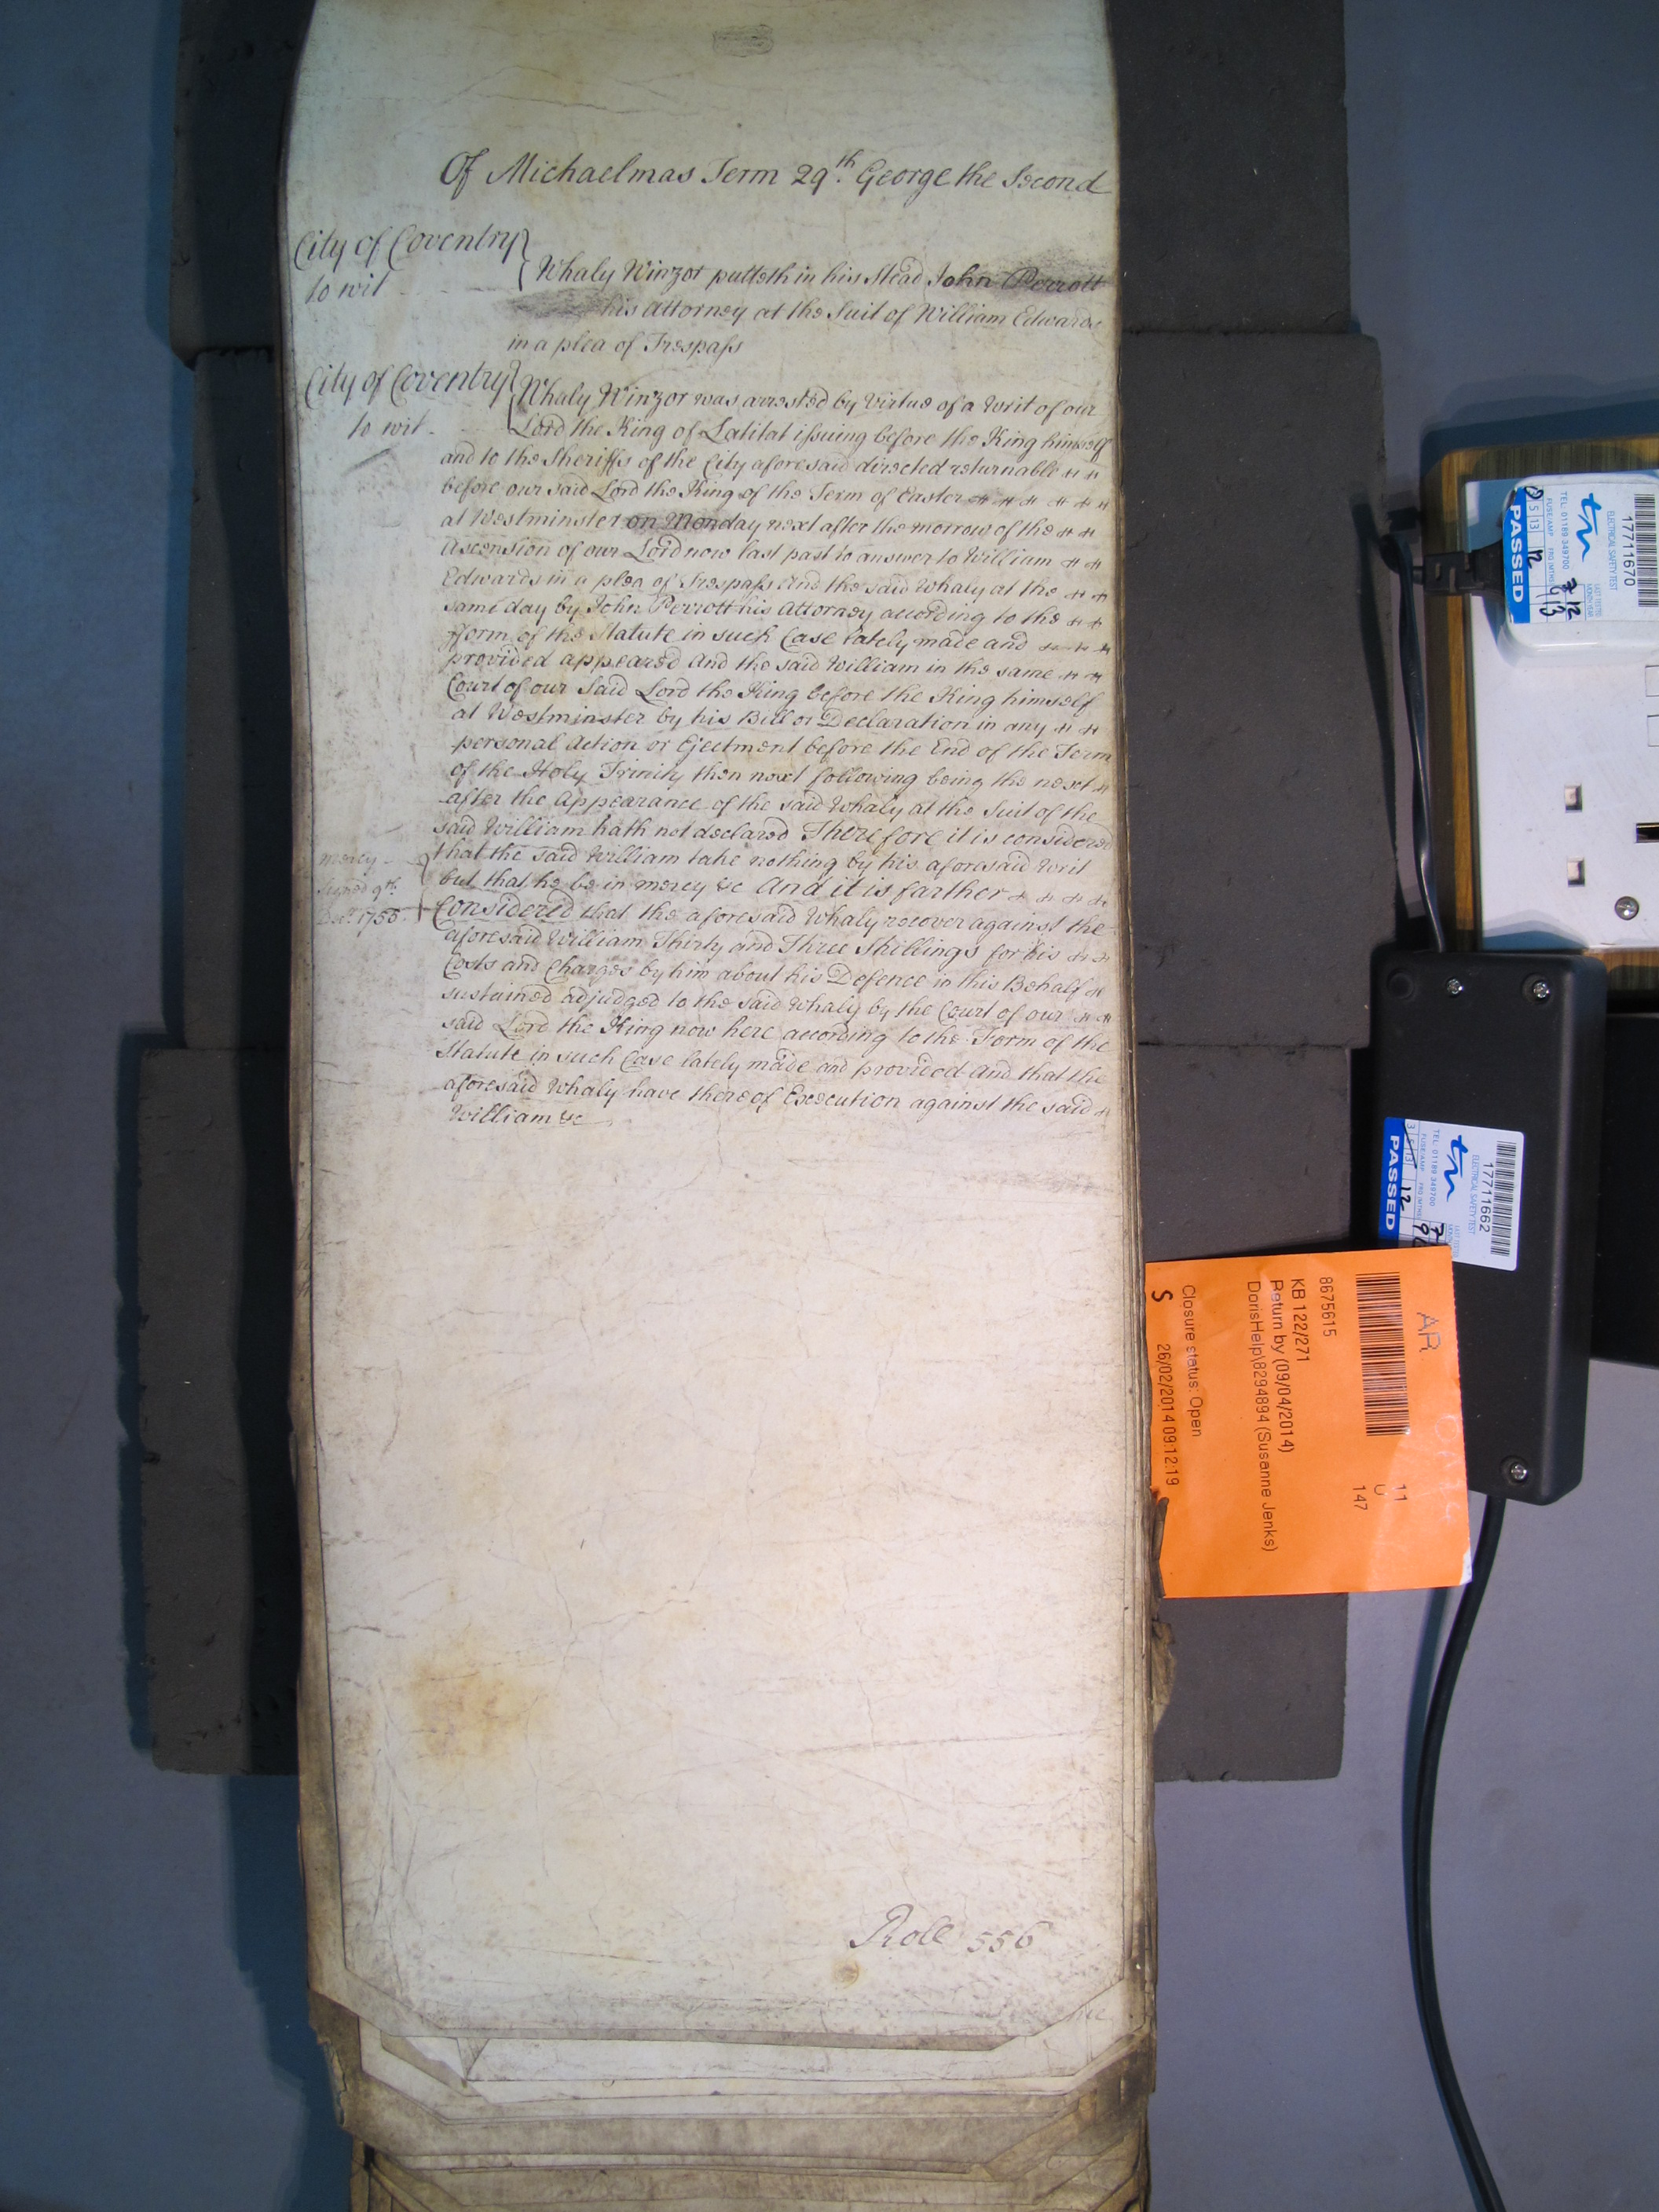 Of Michaelmas Term 29th. George the Second
City of Coventry
to wit
Whaly Winzor putteth in his Stead John Perrott
his Attorney at the Suit of William Edwards
in a plea of Trespass
City of Coventry
to wit
Whaly Winzor was arrested by virtue of a Writ of our
Lord the King of Latitat issuing before the King himself
and to the Sheriffs of the City aforesaid directed returnable
before our said Lord the King of the Term of Easter
at Westminster on Monday next after the morrow of the
Ascension of our Lord now last past to answer to William
Edwards in a plea of Trespass And the said Whaly at the
same day by John Perrott his Attorney according to the
fform of the Statute in such Case lately made and
provided appeared And the said William in the same
Court of our Said Lord the King before the King himself
at Westminster by his Bill or Declaration in any
personal Action or Ejectment before the End of the Term
of the Holy Trinity then next following being the next
after the Appearance of the said Whaly at the Suit of the
said William hath not declared Therefore it is considered
that the said William take nothing by his aforesaid Writ
but that he be in mercy &c And it is farther
Considered that the aforesaid Whaly recover against the
aforesaid William Thirty and Three Shillings for his
Costs and Charges by him about his Defence in this Behalf
sustained adjudged to the said Whaly by the Court of our
said Lord the King now here according to the Form of the
Statute in such Case lately made and provided And that the
aforesaid Whaly have thereof Execution against the said
William &c
mercy
Signed 9th.
Decr. 1755
Roll 556
17711670
ELECTRICAL SAFETY TEST
TEL: 01189 349700
PASSED
17711662
ELECTRICAL SAFETY TEST
TEL: 01189 349700
PASSED
AR
11
U
147
8675615
KB 122/271
Return by (09/04/2014)
DorisHelp\8294894 (Susanne Jenks)
Closure status: Open
S 26/02/2014 09:12:19